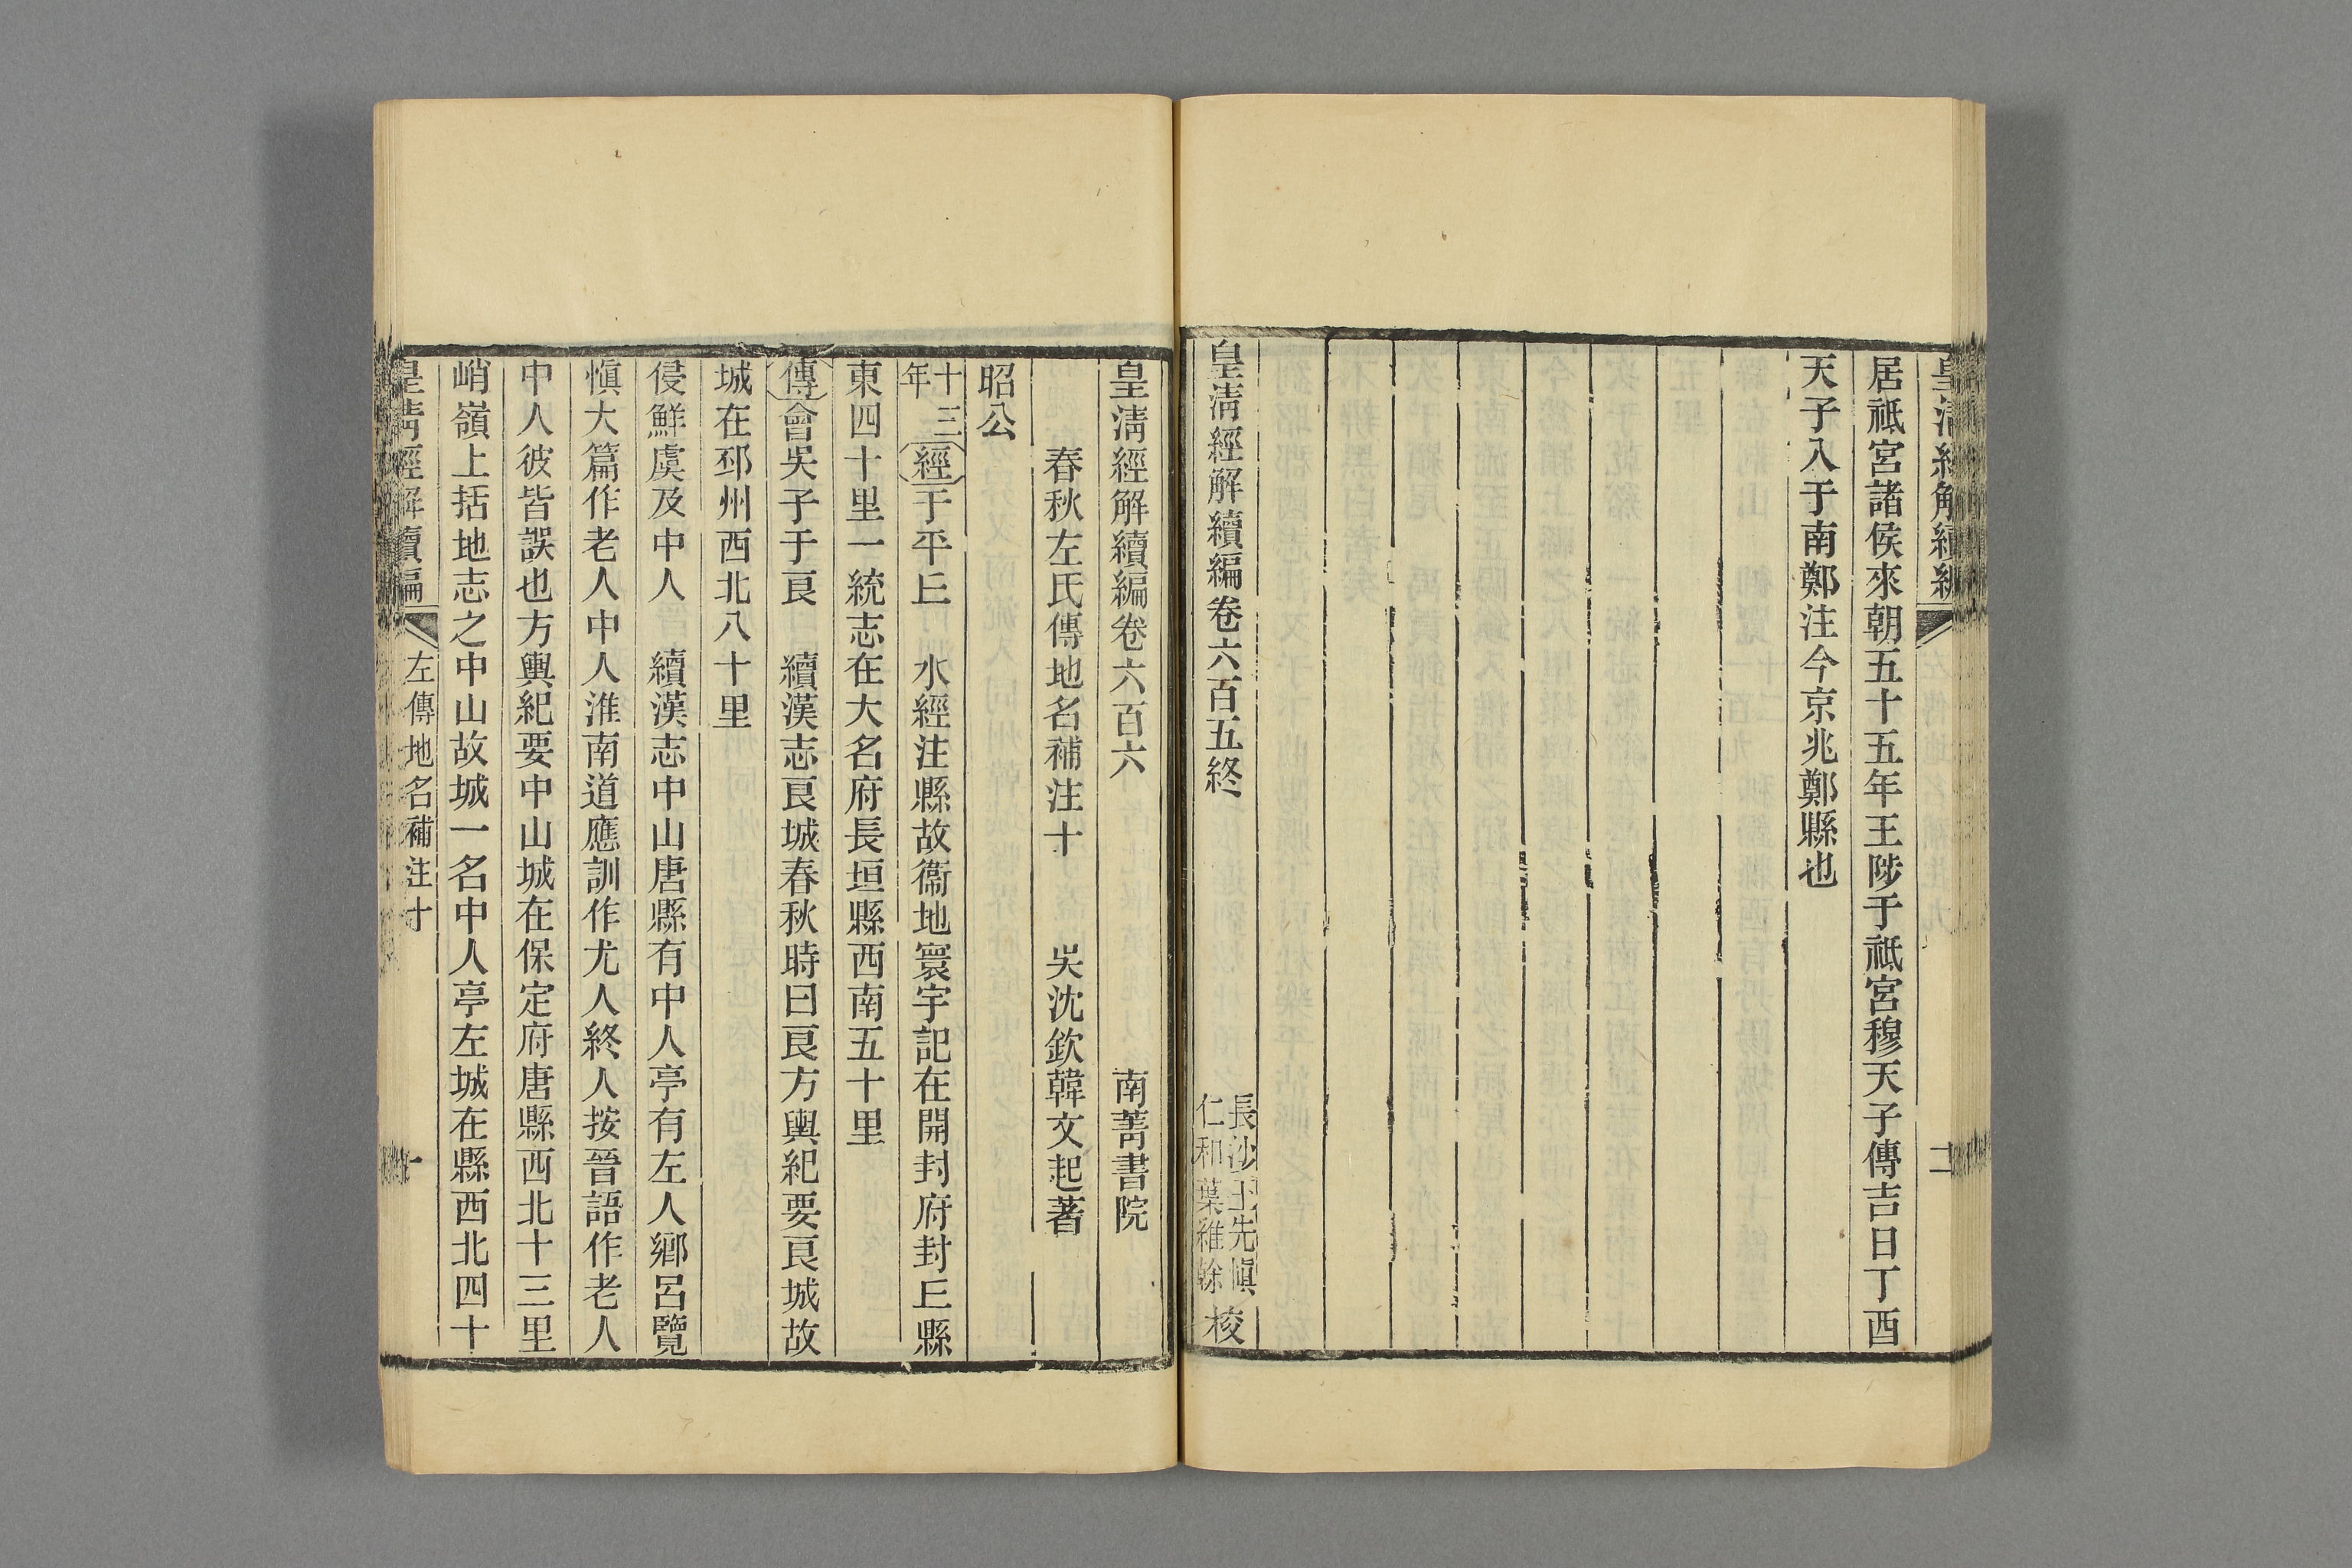 居祗宮諸侯來朝五十五年王陟于祗宮穆天子傳吉日丁酉
天子入于南鄭注今京兆鄭縣也
皇淸經解續編卷六百五終
長沙王先愼
仁和葉維榦
校
皇淸經解續編卷六百六
南菁書院
春秋左氏傳地名補注十
吳沈欽韓文起著
昭公
十三年經于平𠀉 水經注縣故衞地寰宇記在開封府封𠀉縣
東四十里一統志在大名府長垣縣西南五十里
傳會吳子于良 續漢志良城春秋時曰良方輿紀要良城故
城在邳州西北八十里
侵鮮虞及中人 續漢志中山唐縣有中人亭有左人鄉呂覽
愼大篇作老人中人淮南道應訓作尤人終人按晉語作老人
中人彼皆誤也方輿紀要中山城在保定府唐縣西北十三里
峭嶺上括地志之中山故城一名中人亭左城在縣西北四十
皇淸經解續編
左傳地名補注十
一